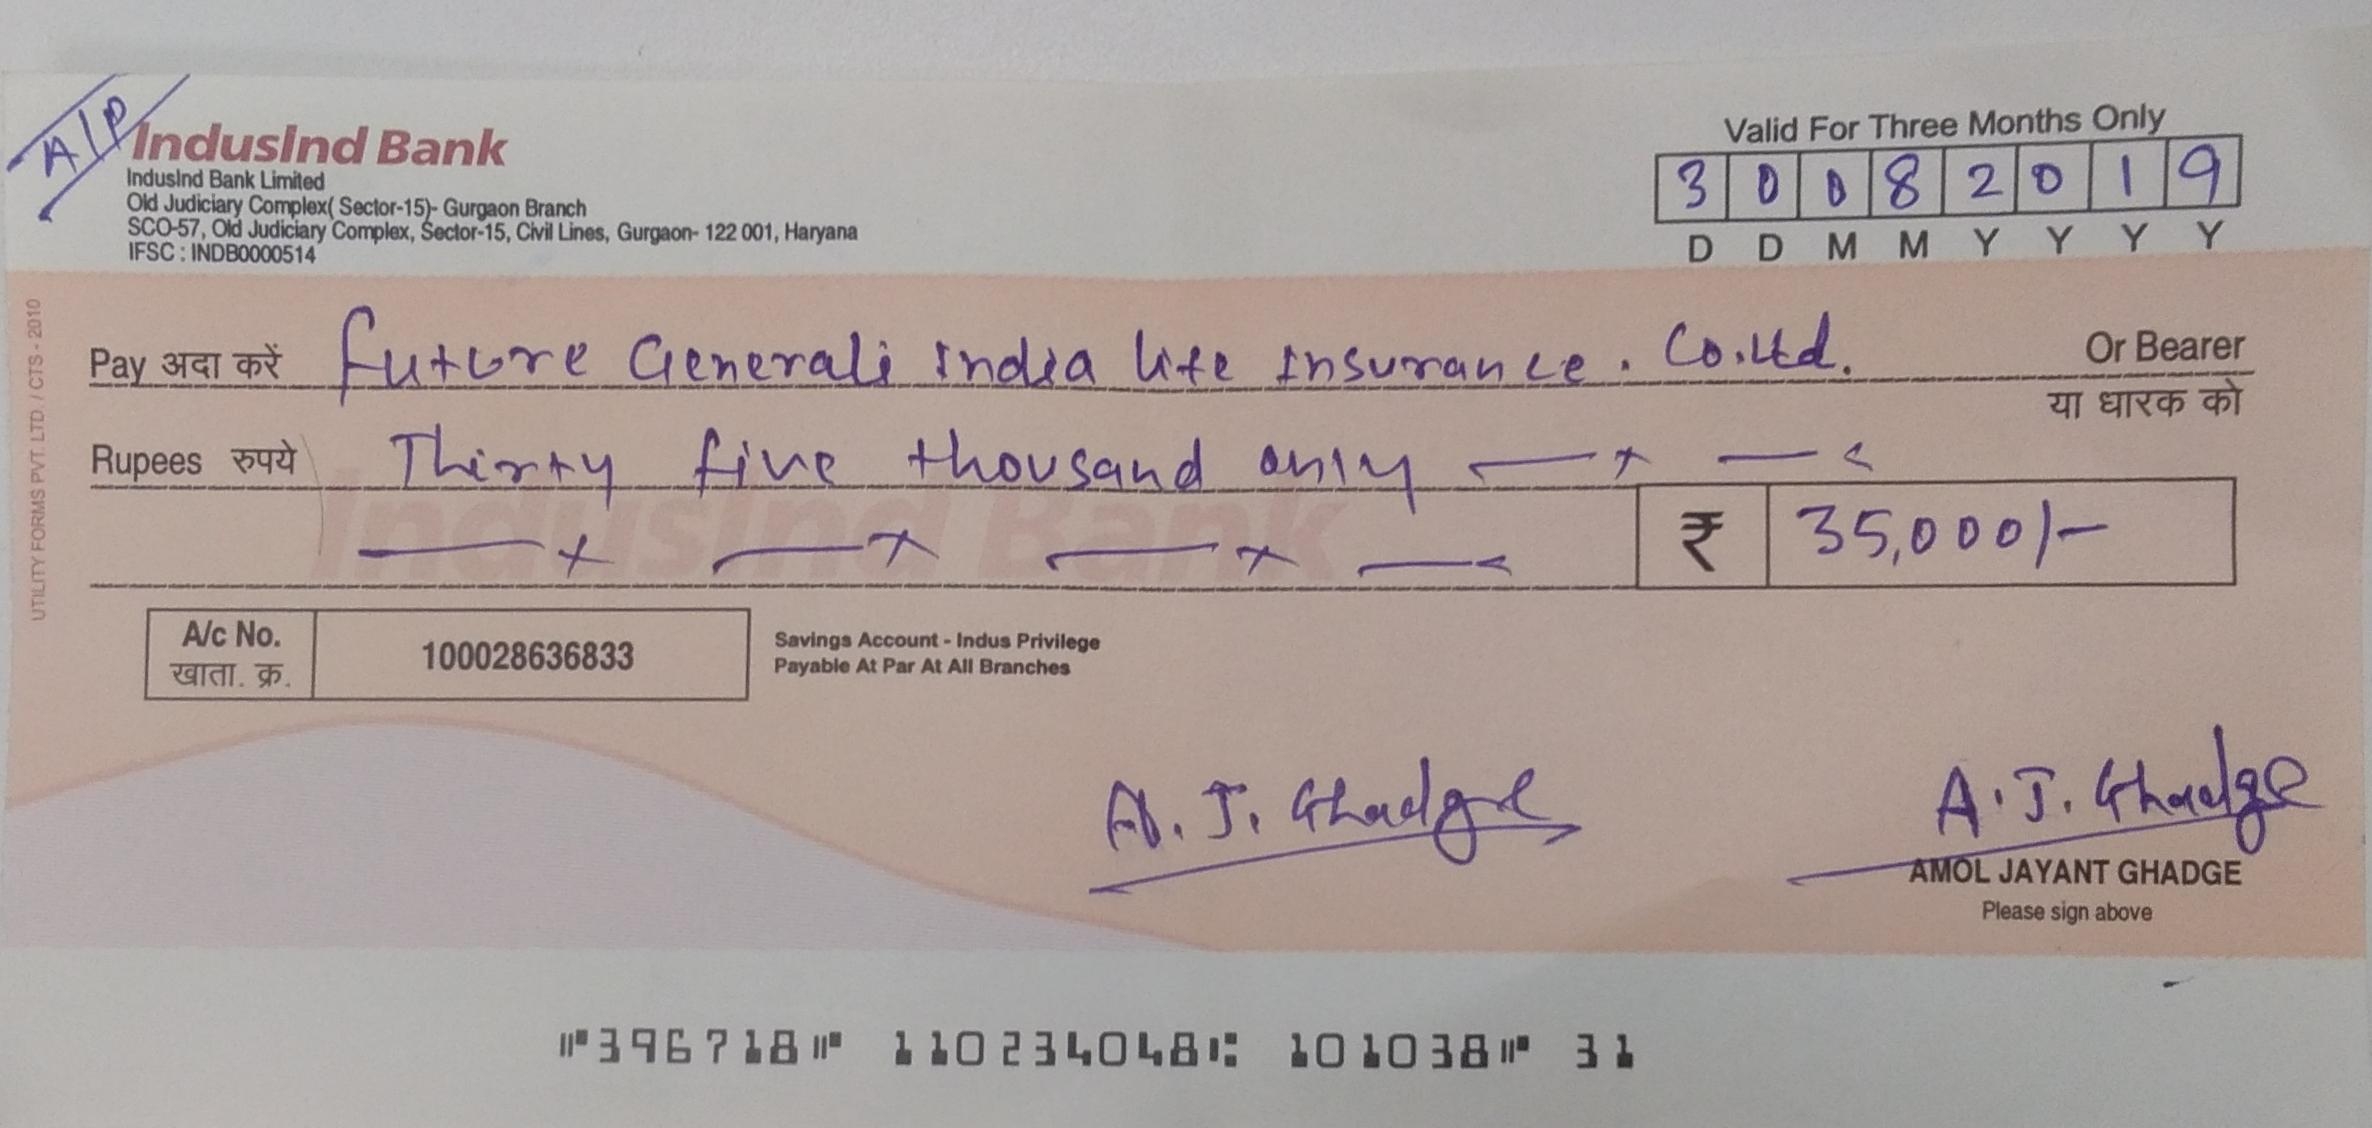 A/P
IndusInd Bank
IndusInd Bank Limited
Old Judiciary Complex( Sector-15)- Gurgaon Branch
SCO-57, Old Judiciary Complex, Sector-15, Civil Lines, Gurgaon- 122 001, Haryana
IFSC : INDB0000514
Valid For Three Months Only
3 0 0 8 2 0 1 9
D D M M Y Y Y Y
Pay अदा करें Future Generali India life Insurance. Co.Ltd. Or Bearer
या धारक को
Rupees रुपये Thirty five thousand only
IndusInd Bank
₹ 35,000/-
A/c No.
खाता. क्र.
100028636833
Savings Account - Indus Privilege
Payable At Par At All Branches
A. J. Ghadge
A. J. Ghadge
AMOL JAYANT GHADGE
Please sign above
UTILITY FORMS PVT. LTD. / CTS - 2010
⑈396718⑈ 110234048⑆ 101038⑈ 31